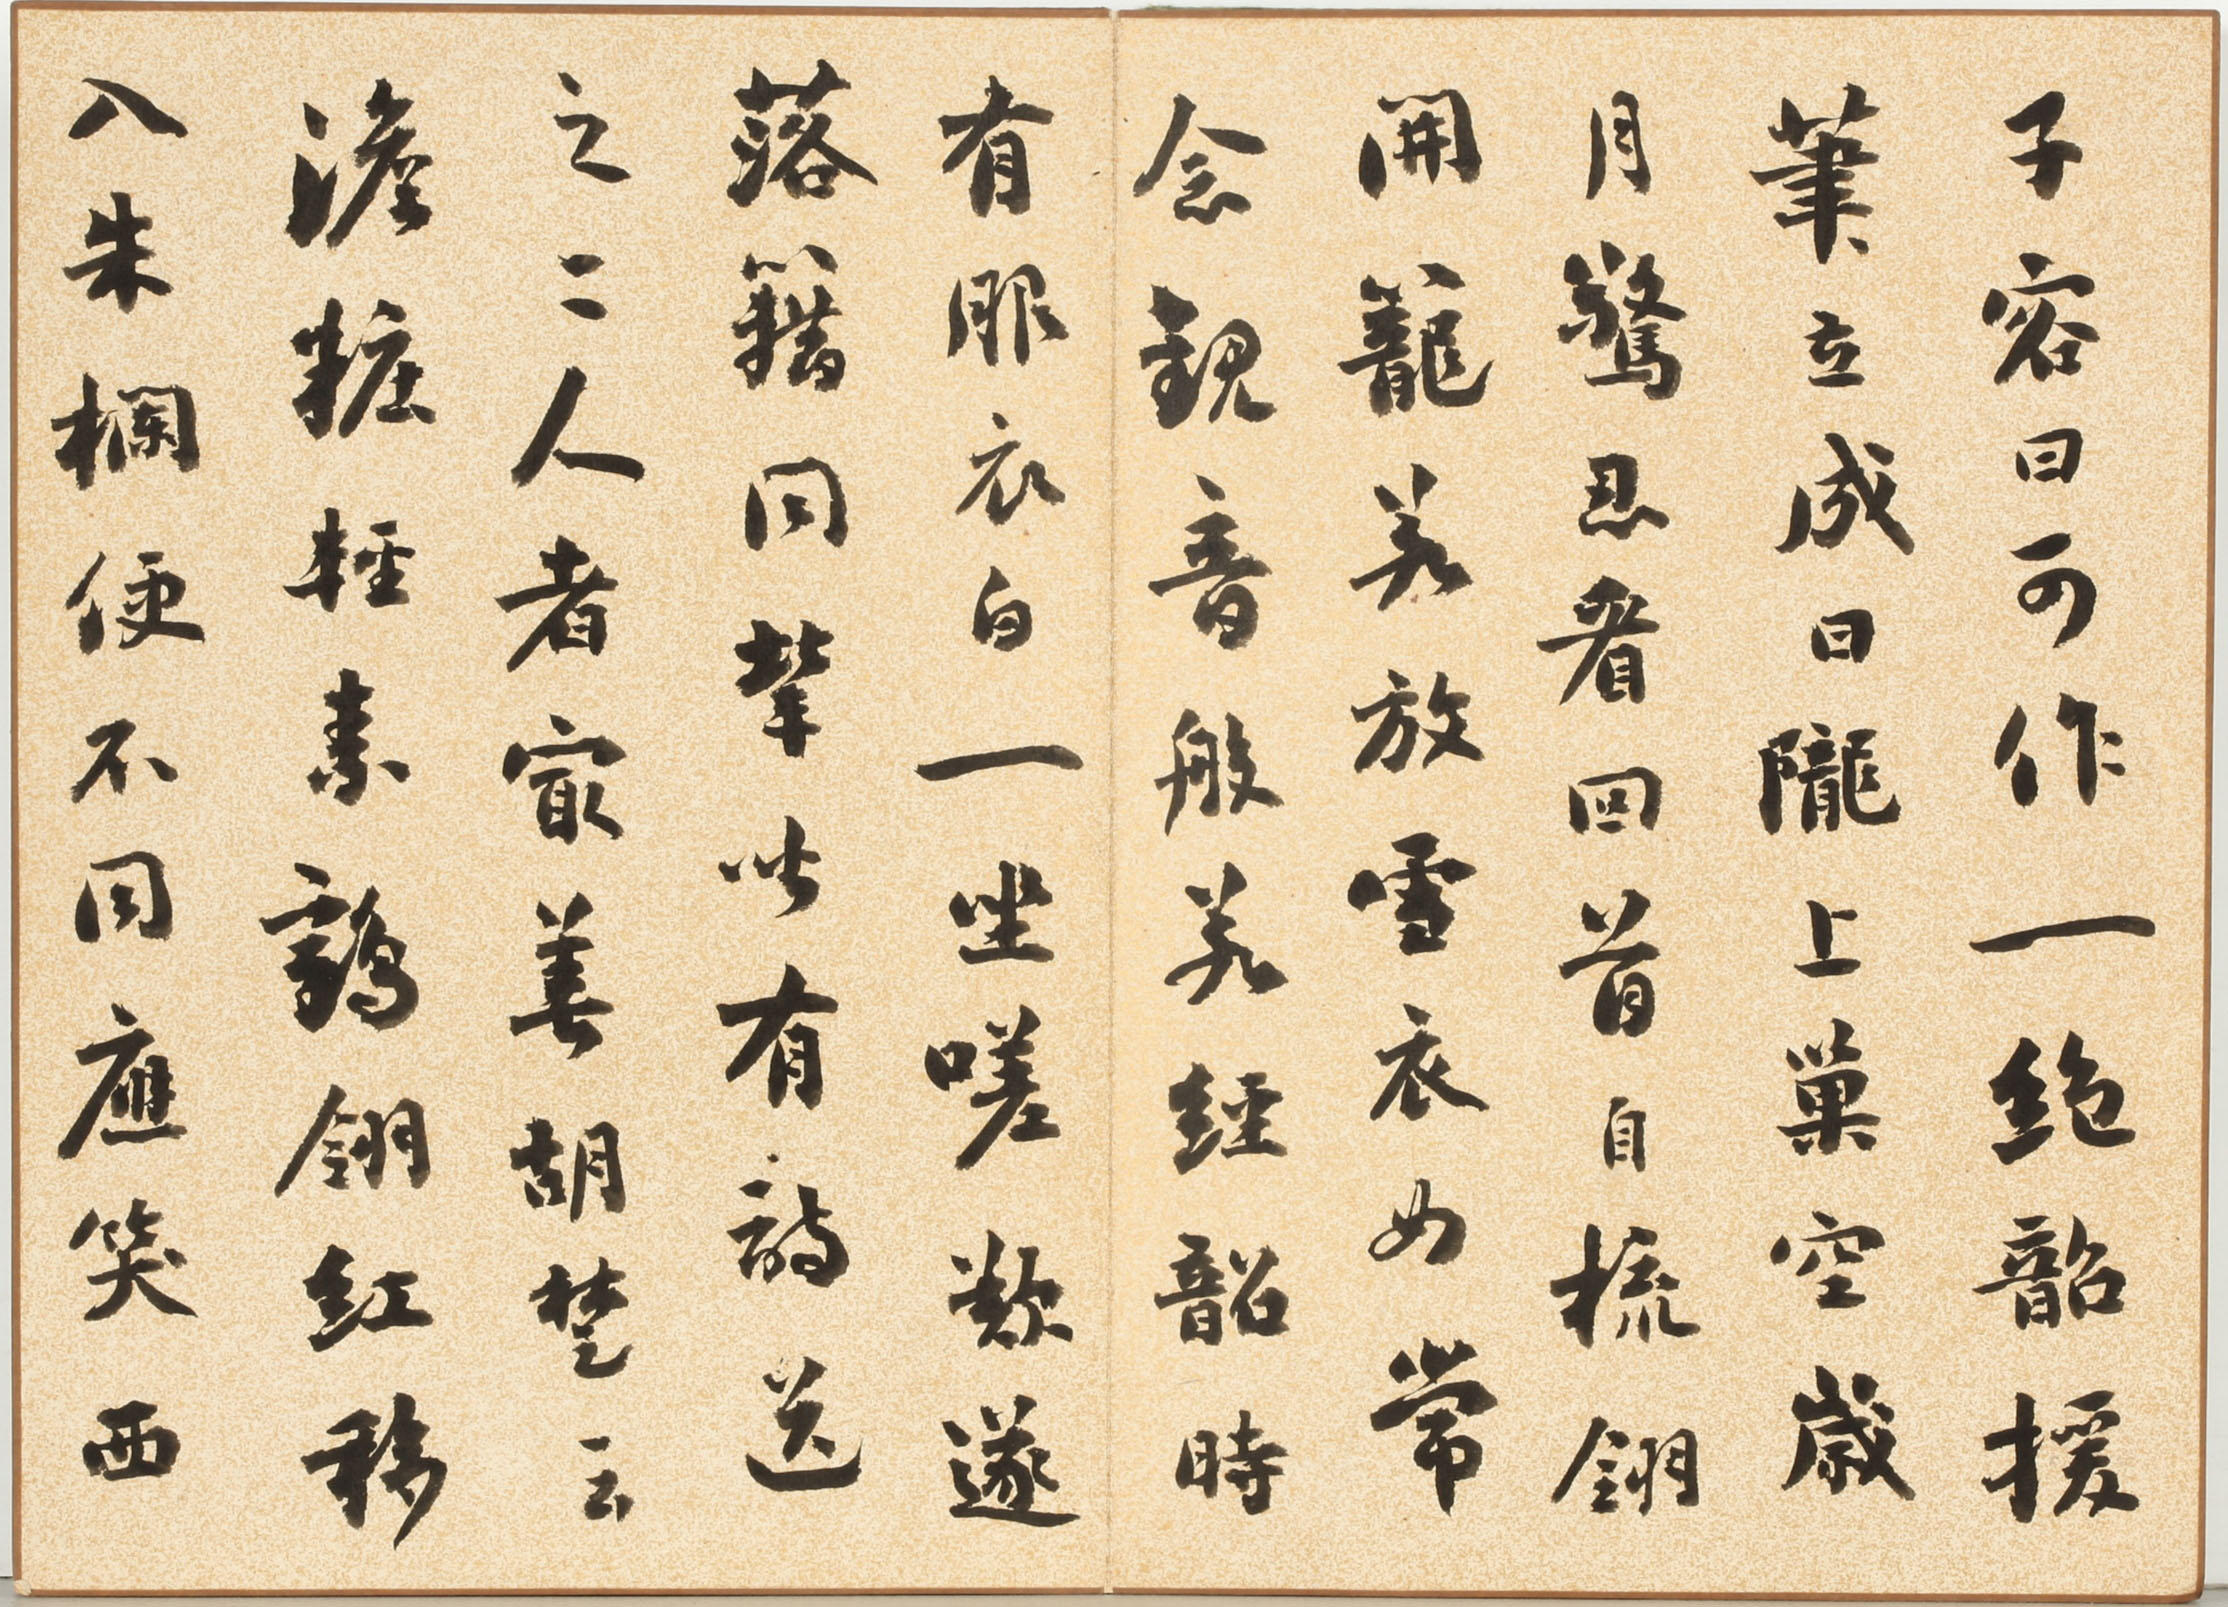 子容曰可作一絶韶援
筆立成曰隴上巢空歲
月驚忍看回首自梳翎
開籠若放雪衣女常
念觀音般若經韶時
有服衣白一坐嗟歎遂
落籍同輩皆有詩送
之二人者最善胡楚云
澹粧輕素鶴翎紅移
入朱欄便不同應笑西